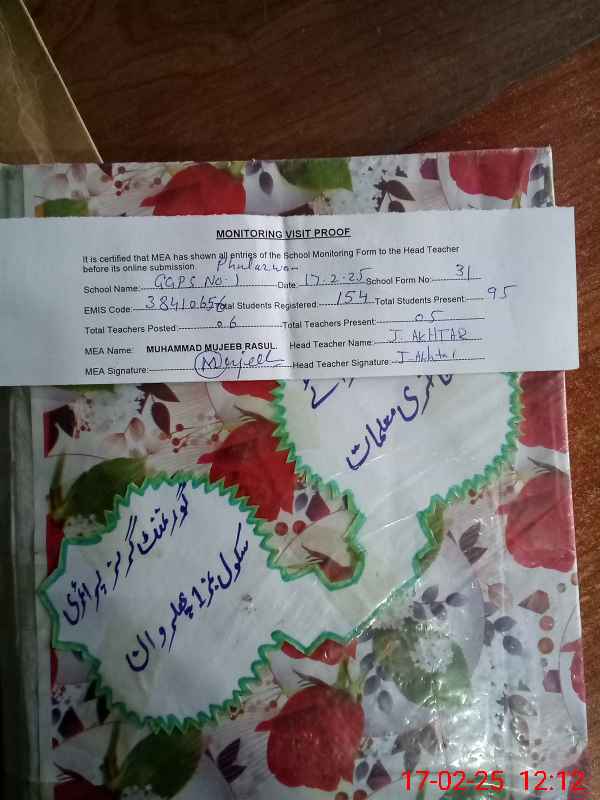 MONITORING VISIT PROOF
It is certified that MEA has shown all entries of the School Monitoring Form to the Head Teacher
before its online submission. Phularwan
School Name: GGPS No: 1 Date: 17-2-25 School Form No: 31
EMIS Code: 38410656 Total Students Registered: 154 Total Students Present: 95
Total Teachers Posted: 06 Total Teachers Present: 05
MEA Name: MUHAMMAD MUJEEB RASUL. Head Teacher Name: J. AKHTAR
MEA Signature: Mujeeb Head Teacher Signature: J. Akhtar
برائے
حاضری معلمات
گورنمنٹ گرلز پرائمری
سکول نمبر 1 پھلروان
17-02-25 12:12